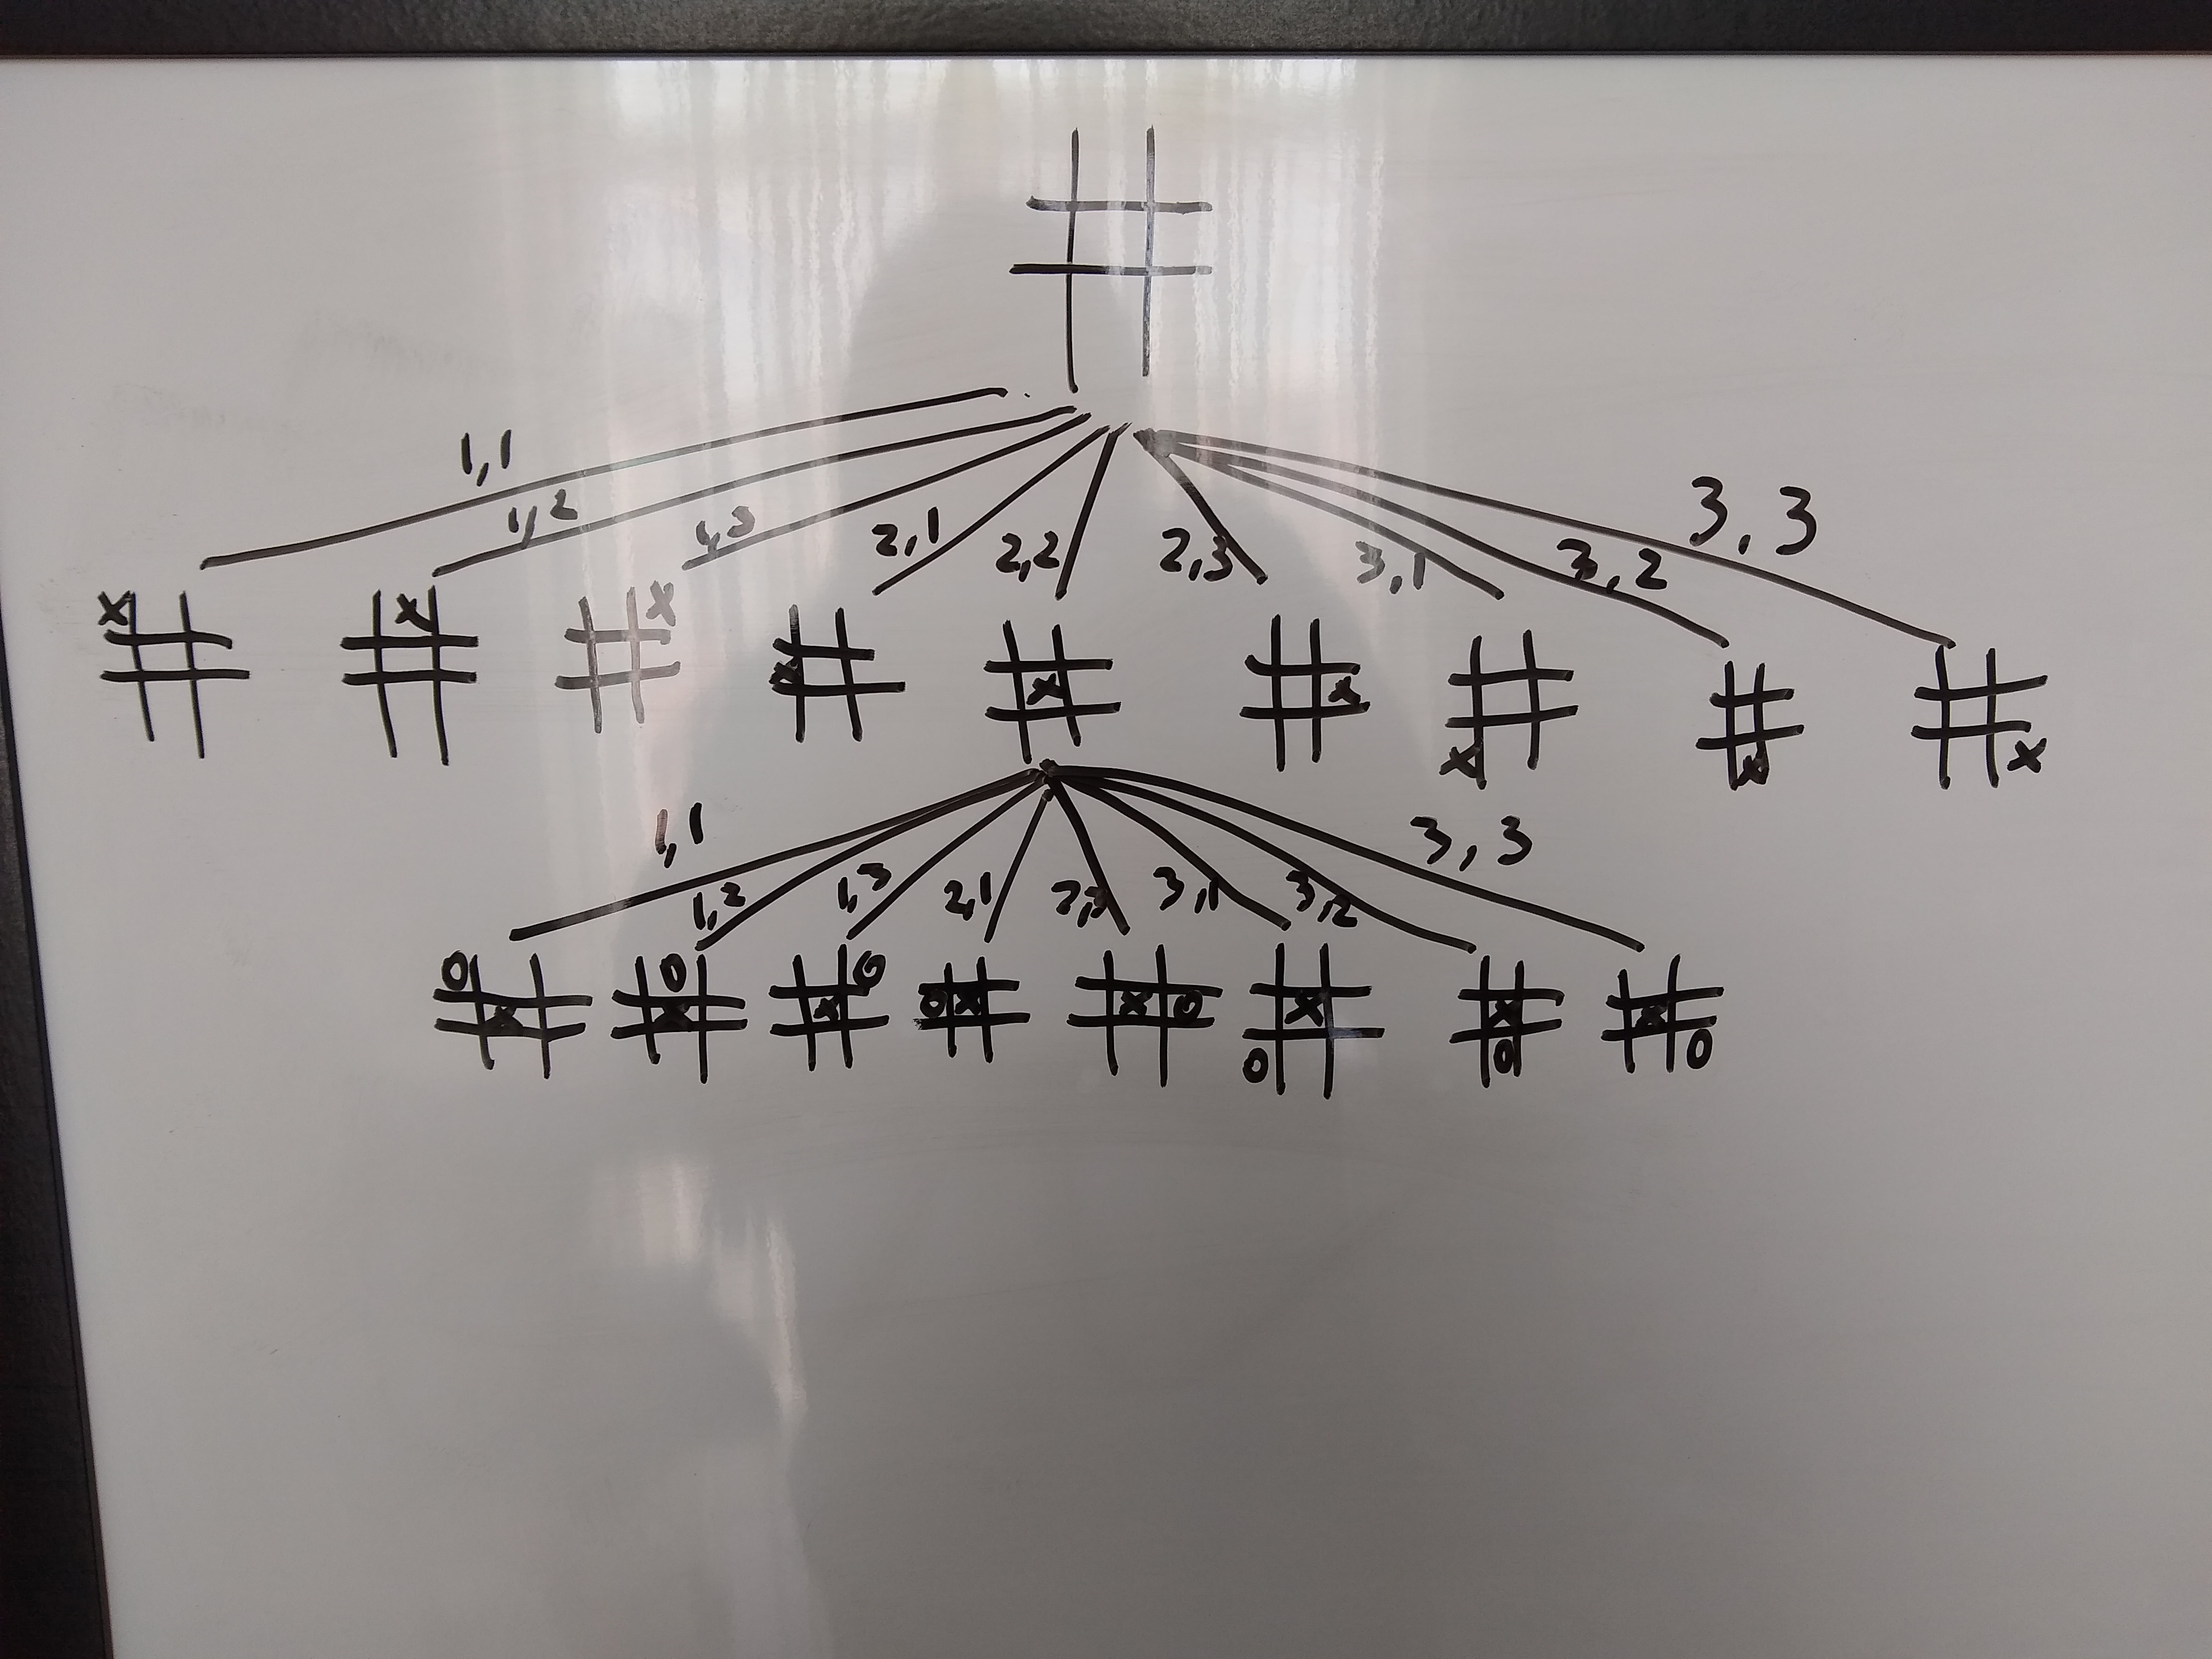 1,1
1,2
1,3
2,1
2,2
2,3
3,1
3,2
3,3
x
x
x
x
x
x
x
x
x
1,1
1,2
1,3
2,1
2,3
3,1
3,2
3,3
0
x
0
x
0
x
0 x
x 0
x
0
x
0
x
0